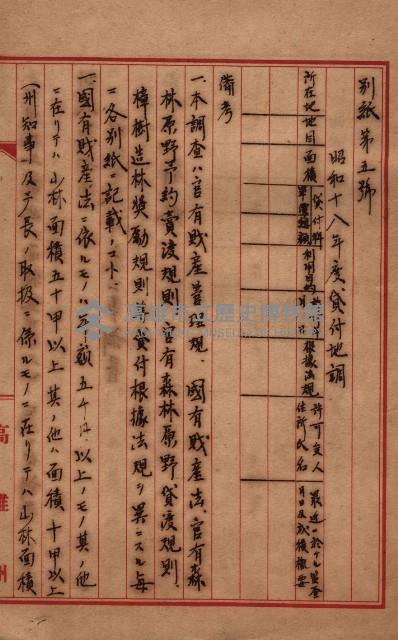 別紙第五號
昭和十八年度貸付地調
所在地
地目
面積
貸付料
單價
總額
利用目的
根據法規
許可受人住所氏名
最近ニ於ケル監査月日及成績概要
備考
一、本調査ハ官有財産管理規則、國有財産法、官有森
林原野予約賣渡規則、官有森林原野貸渡規則、
樟樹造林奬勵規則等貸付根據法規ヲ異ニスル毎
ニ各別紙ニ記載ノコト、
一、國有財産法ニ依ルモノハ年額五千円以上ノモノ其ノ他
ニ在リテハ山林面積五十甲以上其ノ他ハ面積十甲以上
(州知事及廳長ノ取扱ニ係ルモノニ在リテハ山林面積
高雄州
高雄市立歷史博物館